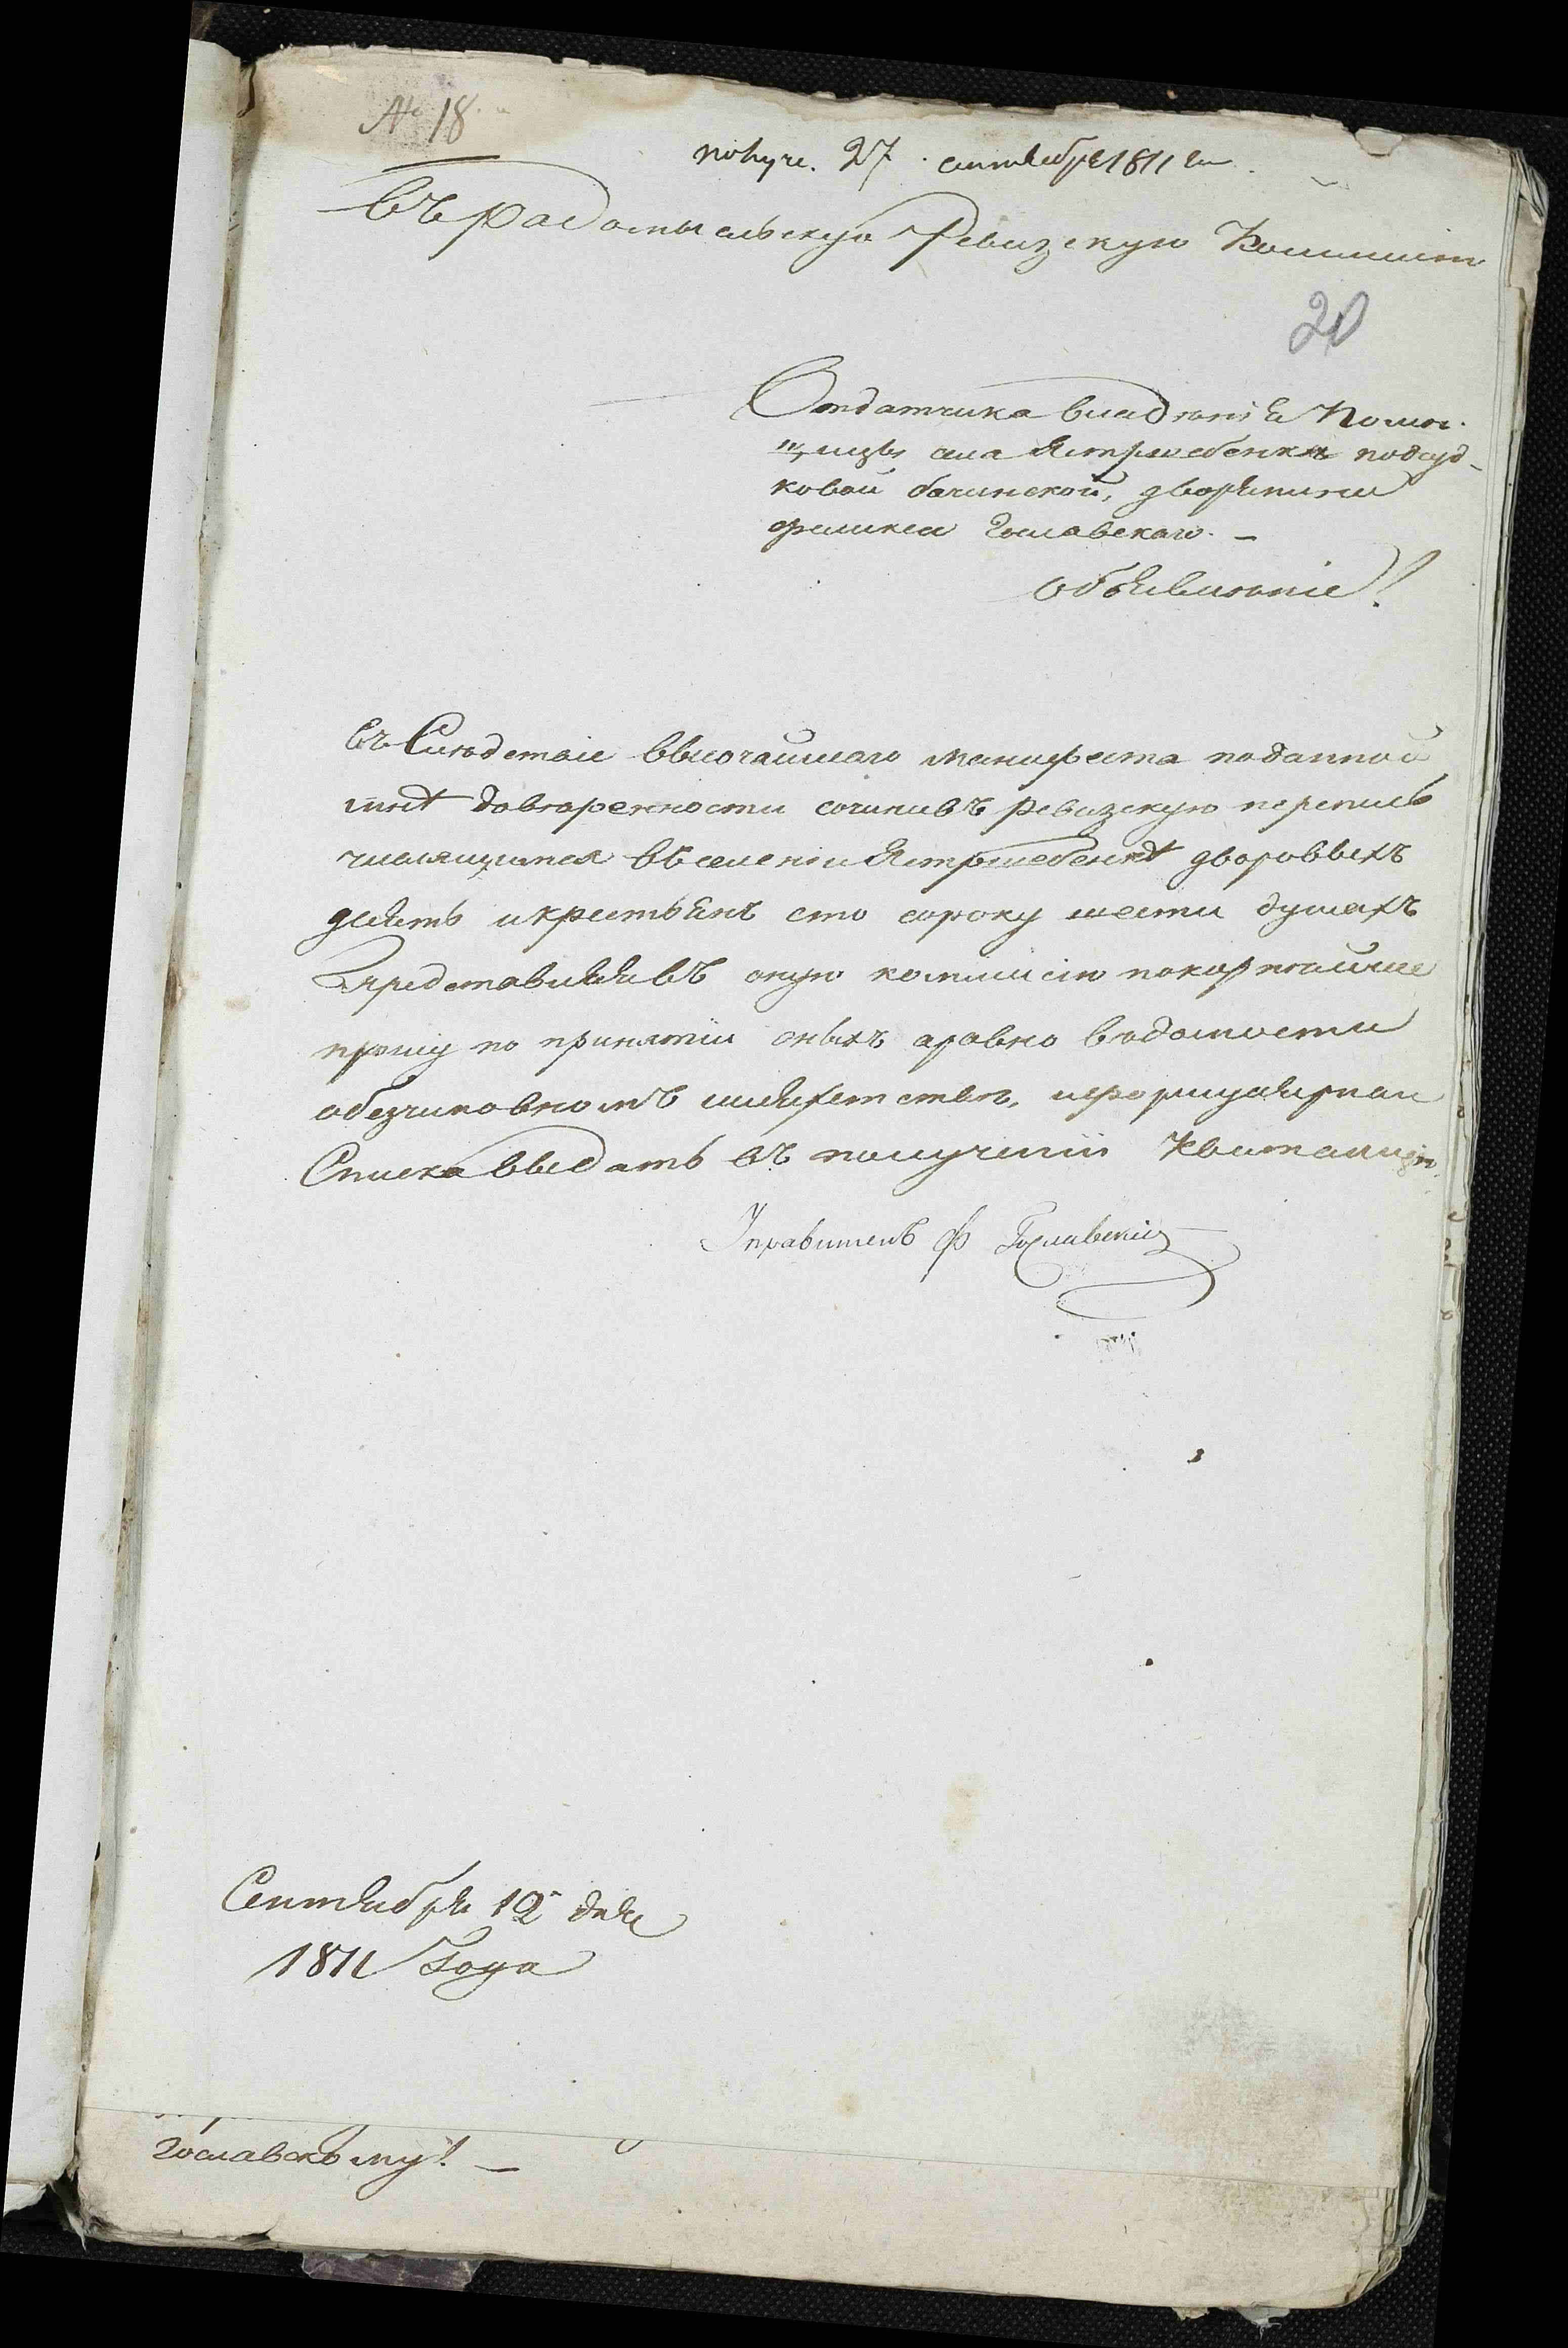 № 18
получе. 27. сентября 1811 го
Въ Радомысльскую Ревизскую Коммисію
20
Отдатчика владѣнія Помѣ-
щицы села Ястршебенки подсуд-
ковой бачинской, дворянина
феликса Гославскаго. —
Объявленіе!
Въ Слѣдствіе Высочайшаго манифеста поданной
мнѣ довѣренности сочинивъ ревизскую перепись
числящимся вселеніи Ястршебенкѣ дворовыхъ
девять икрестьянъ сто сороку шести душахъ
представляя въ оную коммисію покорнѣйше
прошу по принятіи оныхъ аравно вѣдомости
обезчиновномъ шляхетствѣ, иформулярнаи
Списка выдать въ полученіи Квитанцію
Управитель Ф Гославскій
Сентября 12 дня
1811 Года
Гославскому! —